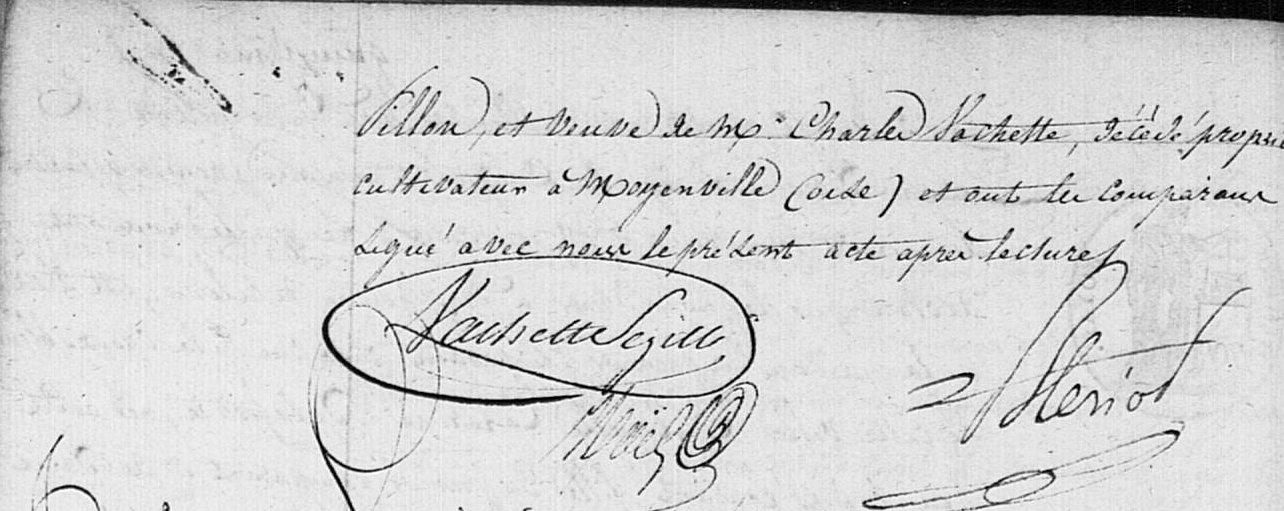 Pillon, et veuve de Mr. Charles Vachette, décédé, propri
cultivateur à Moyenville (oise) et ont les comparans
signé avec nous le présent acte après lecture
Vachette
Noël
Heriot